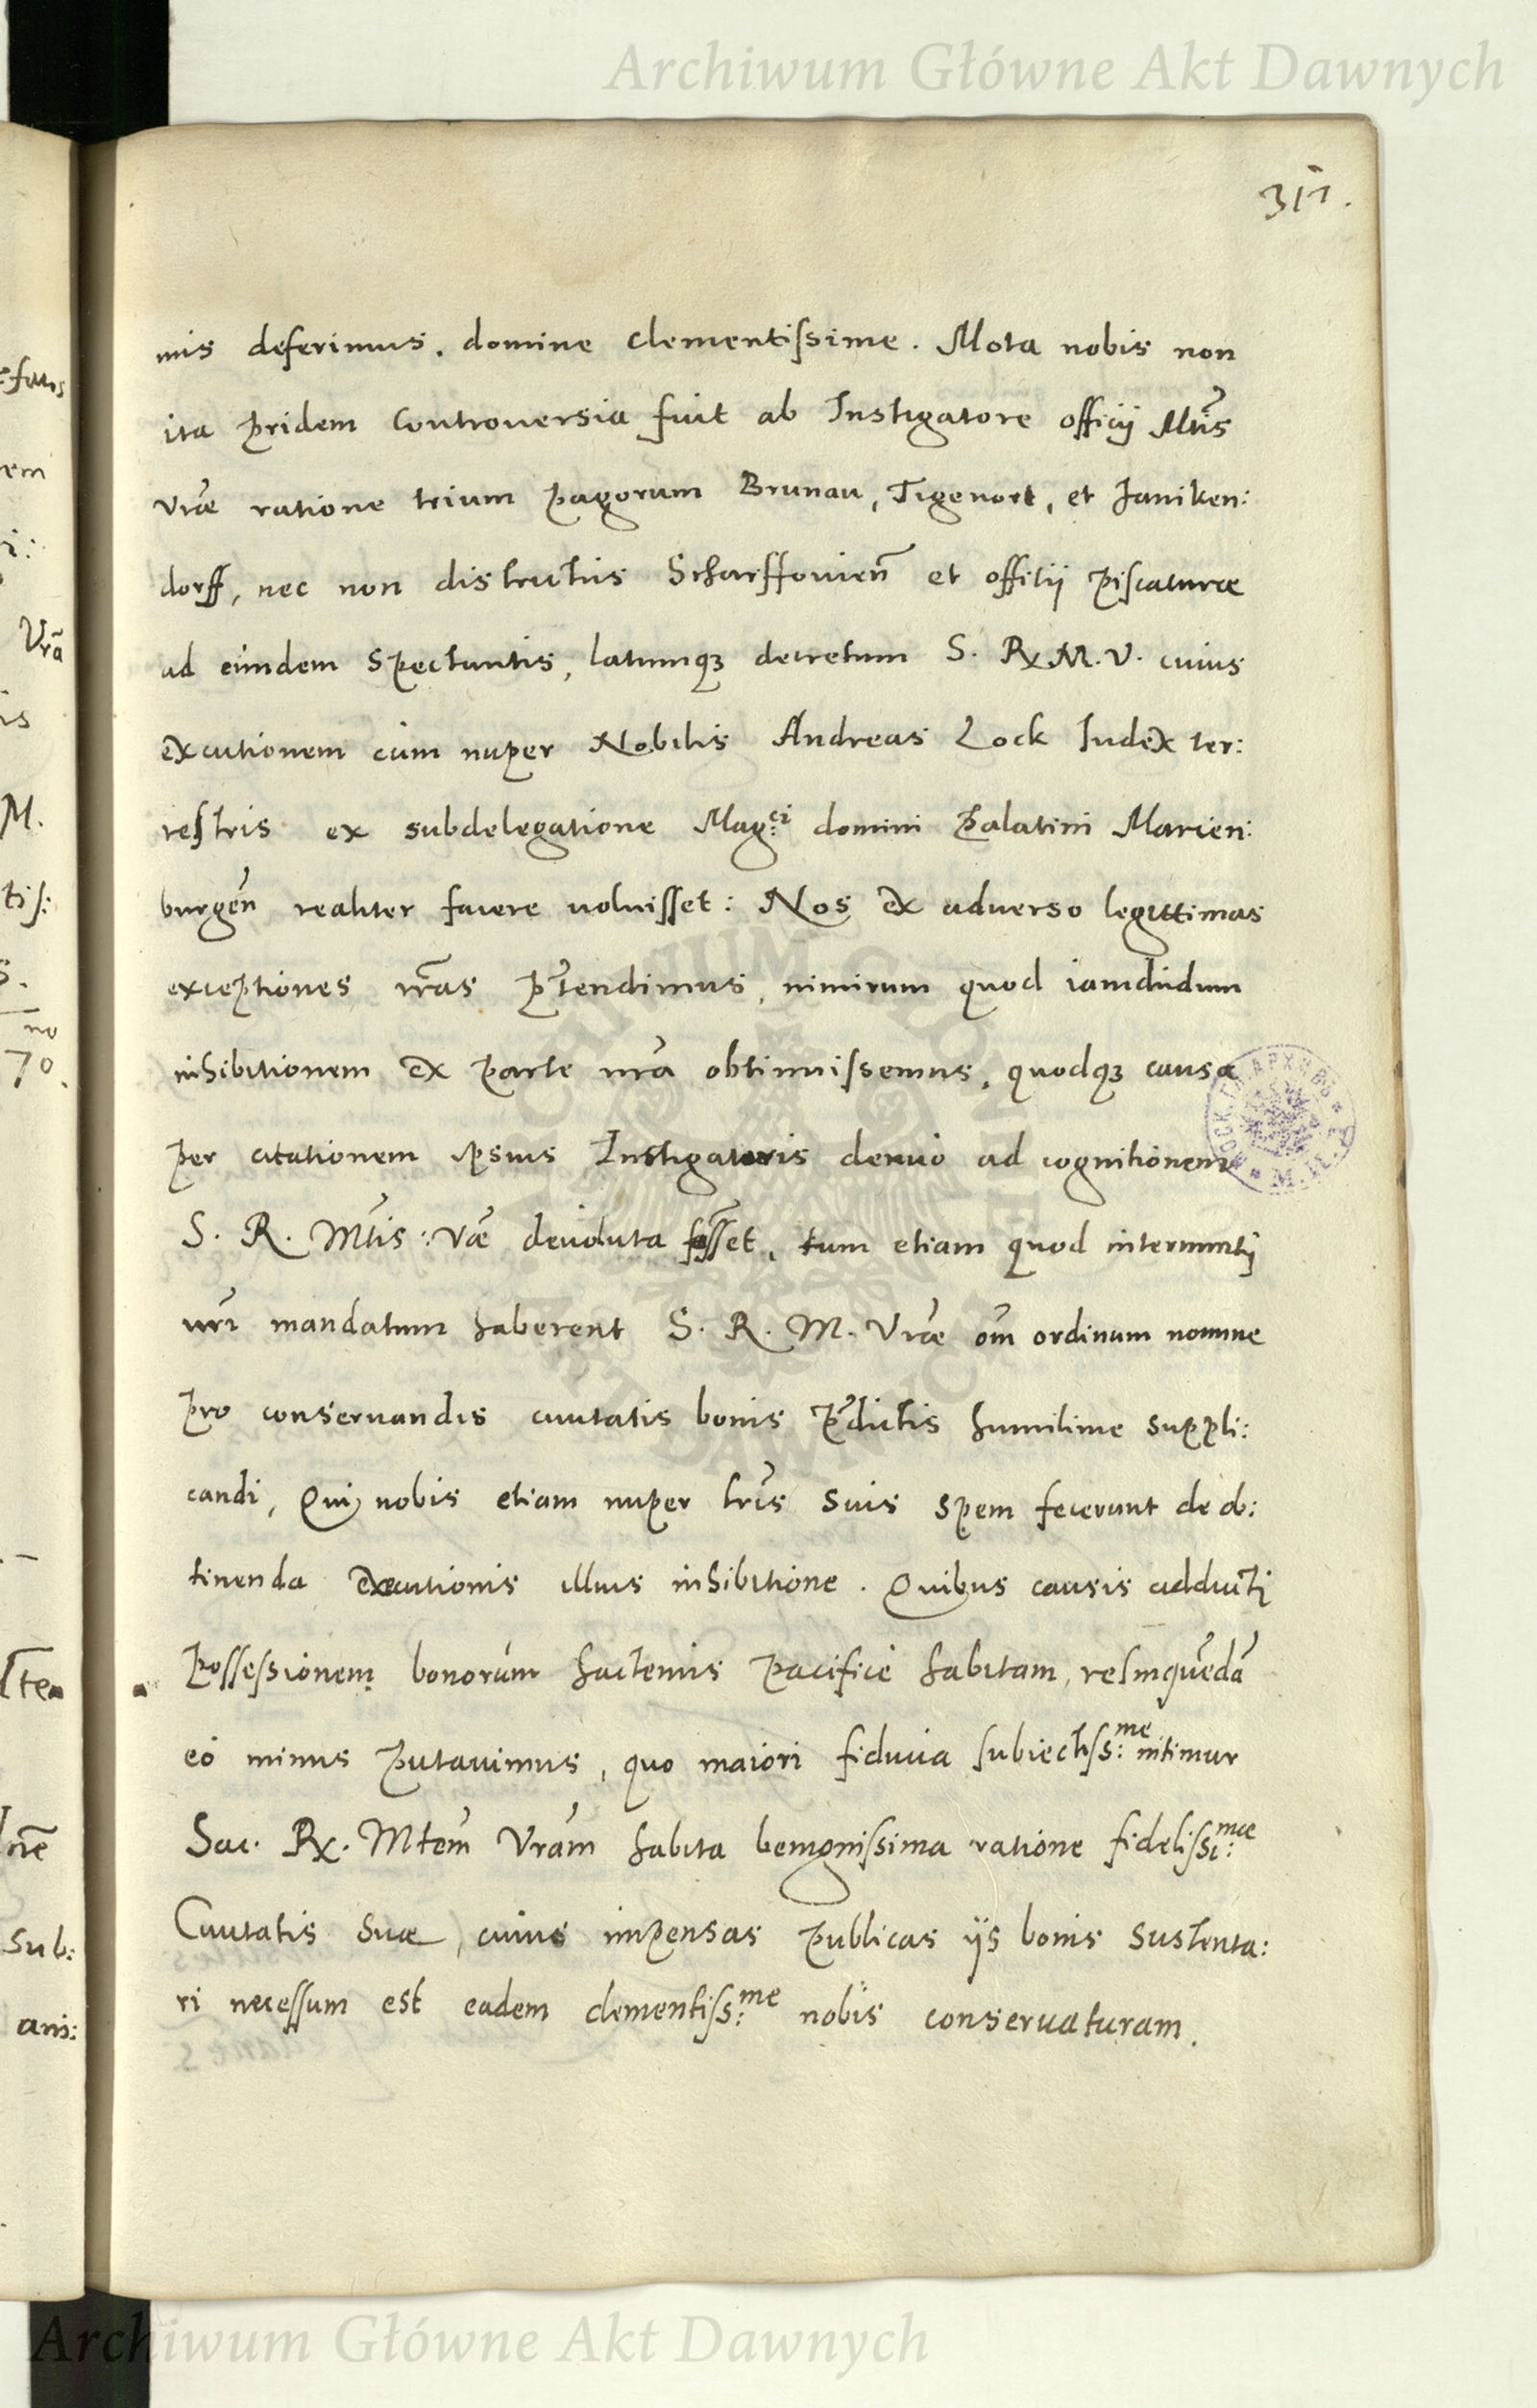 Archiwum Główne Akt Dawnych
317.
mis deferimus. domine clementissime. Mota nobis non
ita pridem Controuersia fuit ab Instigatore officij Mtis
Vræ ratione trium pagorum Brunau, Tigenort, et Janiken:
dorff, nec non districtus Scharffouien et offitij piscaturæ
ad eundem spectantis, latumq3 decretum S. Rx M. V. cuius
excutionem cùm nuper Nobilis Andreas Lock Iudex ter:
restris ex subdelegatione Mag:ci domini Palatini Marien:
burgen realiter facere uoluisset: Nos ex aduerso legittimas
exceptiones nras prtendimus, nimirum quod iamdudum
inhibitionem ex parte nra obtinuissemus, quodq3 causa
per citationem ipsius Instigatoris denuò ad cognitionem
S. R. Mtis: Væ deuoluta esset, tum etiam quod internuntij
nri mandatum haberent S. R. M. Vræ om ordinum nomine
pro conseruandis ciuitatis bonis prdictis humilime suppli:
candi, Qui nobis etiam nuper lris suis spem fecerunt de ob:
tinenda executionis illius inhibitione. Quibus causis adducti
Possessionem bonorum hactenus pacificè habitam, relinquedã
eò minus putauimus, quo maiori fiducia subiectiss:me nitimur
Sac. Rx. Mtem Vram habita benignissima ratione fidelissi:mæ
Ciuitatis suæ, cuius impensas publicas ijs bonis sustenta:
ri necessum est eadem clementiss:me nobis conseruaturam.
Archiwum Główne Akt Dawnych